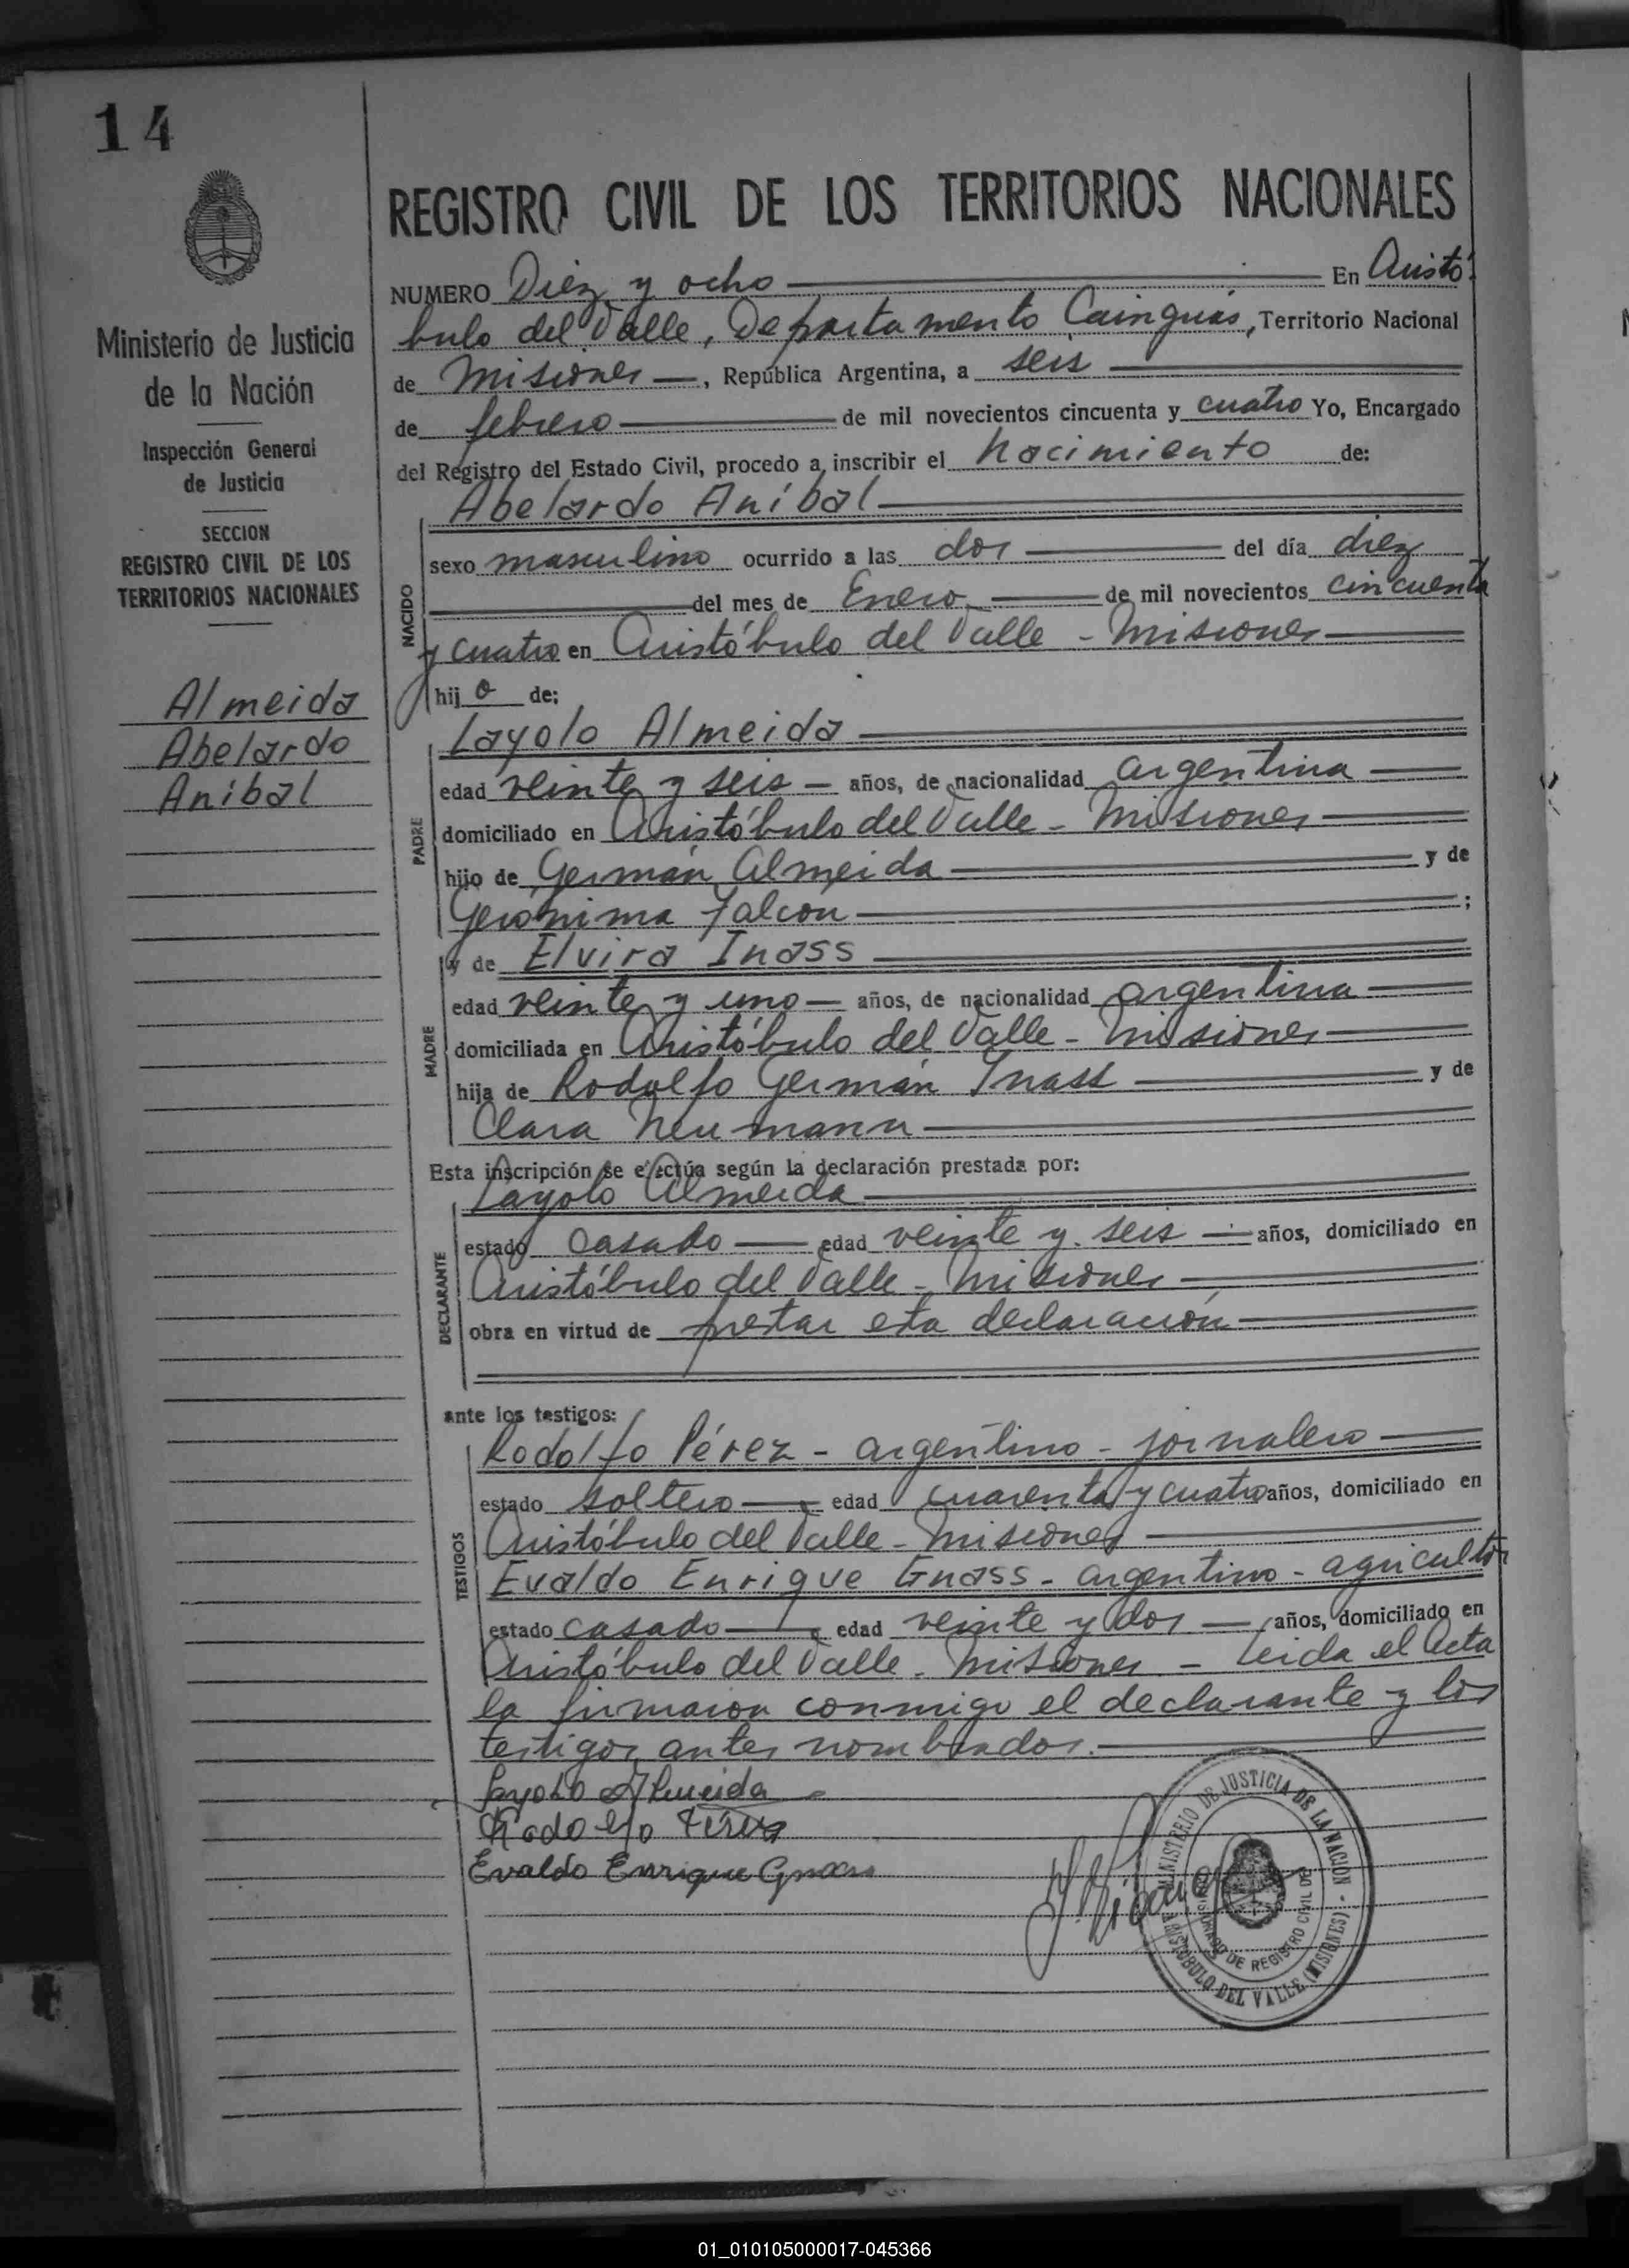 14
REGISTRO CIVIL DE LOS TERRITORIOS NACIONALES
Ministerio de Justicia
de la Nación
Inspección General
de Justicia
SECCION
REGISTRO CIVIL DE LOS
TERRITORIOS NACIONALES
Almeida
Abelardo
Aníbal
NUMERO Diez y ocho En Aristó
bulo del Valle, Departamento Cainguás, Territorio Nacional
de Misiones, República Argentina, a seis
de febrero de mil novecientos cincuenta y cuatro Yo, Encargado
del Registro del Estado Civil, procedo a inscribir el Nacimiento de:
Abelardo Aníbal
NACIDO
sexo masculino ocurrido a las dos del día diez
del mes de Enero de mil novecientos cincuenta
y cuatro en Aristóbulo del Valle - Misiones
hijo de:
PADRE
Layolo Almeida
edad veinte y seis años, de nacionalidad argentina
domiciliado en Aristóbulo del Valle - Misiones
hijo de Germán Almeida y de
Gerónima Falcon ;
MADRE
y de Elvira Inass
edad veinte y uno años, de nacionalidad argentina
domiciliada en Aristóbulo del Valle - Misiones
hija de Rodolfo Germán Inass y de
Clara Neumann
Esta inscripción se efectúa según la declaración prestada por:
DECLARANTE
Layolo Almeida
estado casado edad veinte y seis años, domiciliado en
Aristóbulo del Valle - Misiones
obra en virtud de prestar esta declaración
ante los testigos:
TESTIGOS
Rodolfo Pérez - argentino - jornalero
estado soltero, edad cuarenta y cuatro años, domiciliado en
Aristóbulo del Valle - Misiones
Evaldo Enrique Gnass - argentino - agricultor
estado casado, edad veinte y dos años, domiciliado en
Aristóbulo del Valle - Misiones - Leida el Acta
la firmaron conmigo el declarante y los
testigos antes nombrados.
Layolo Almeida
Rodolfo Pérez
Evaldo Enrique Gnass
MINISTERIO DE JUSTICIA DE LA NACION
DE REGISTRO CIVIL DE
ARISTOBULO DEL VALLE (MISIONES)
01_010105000017-045366